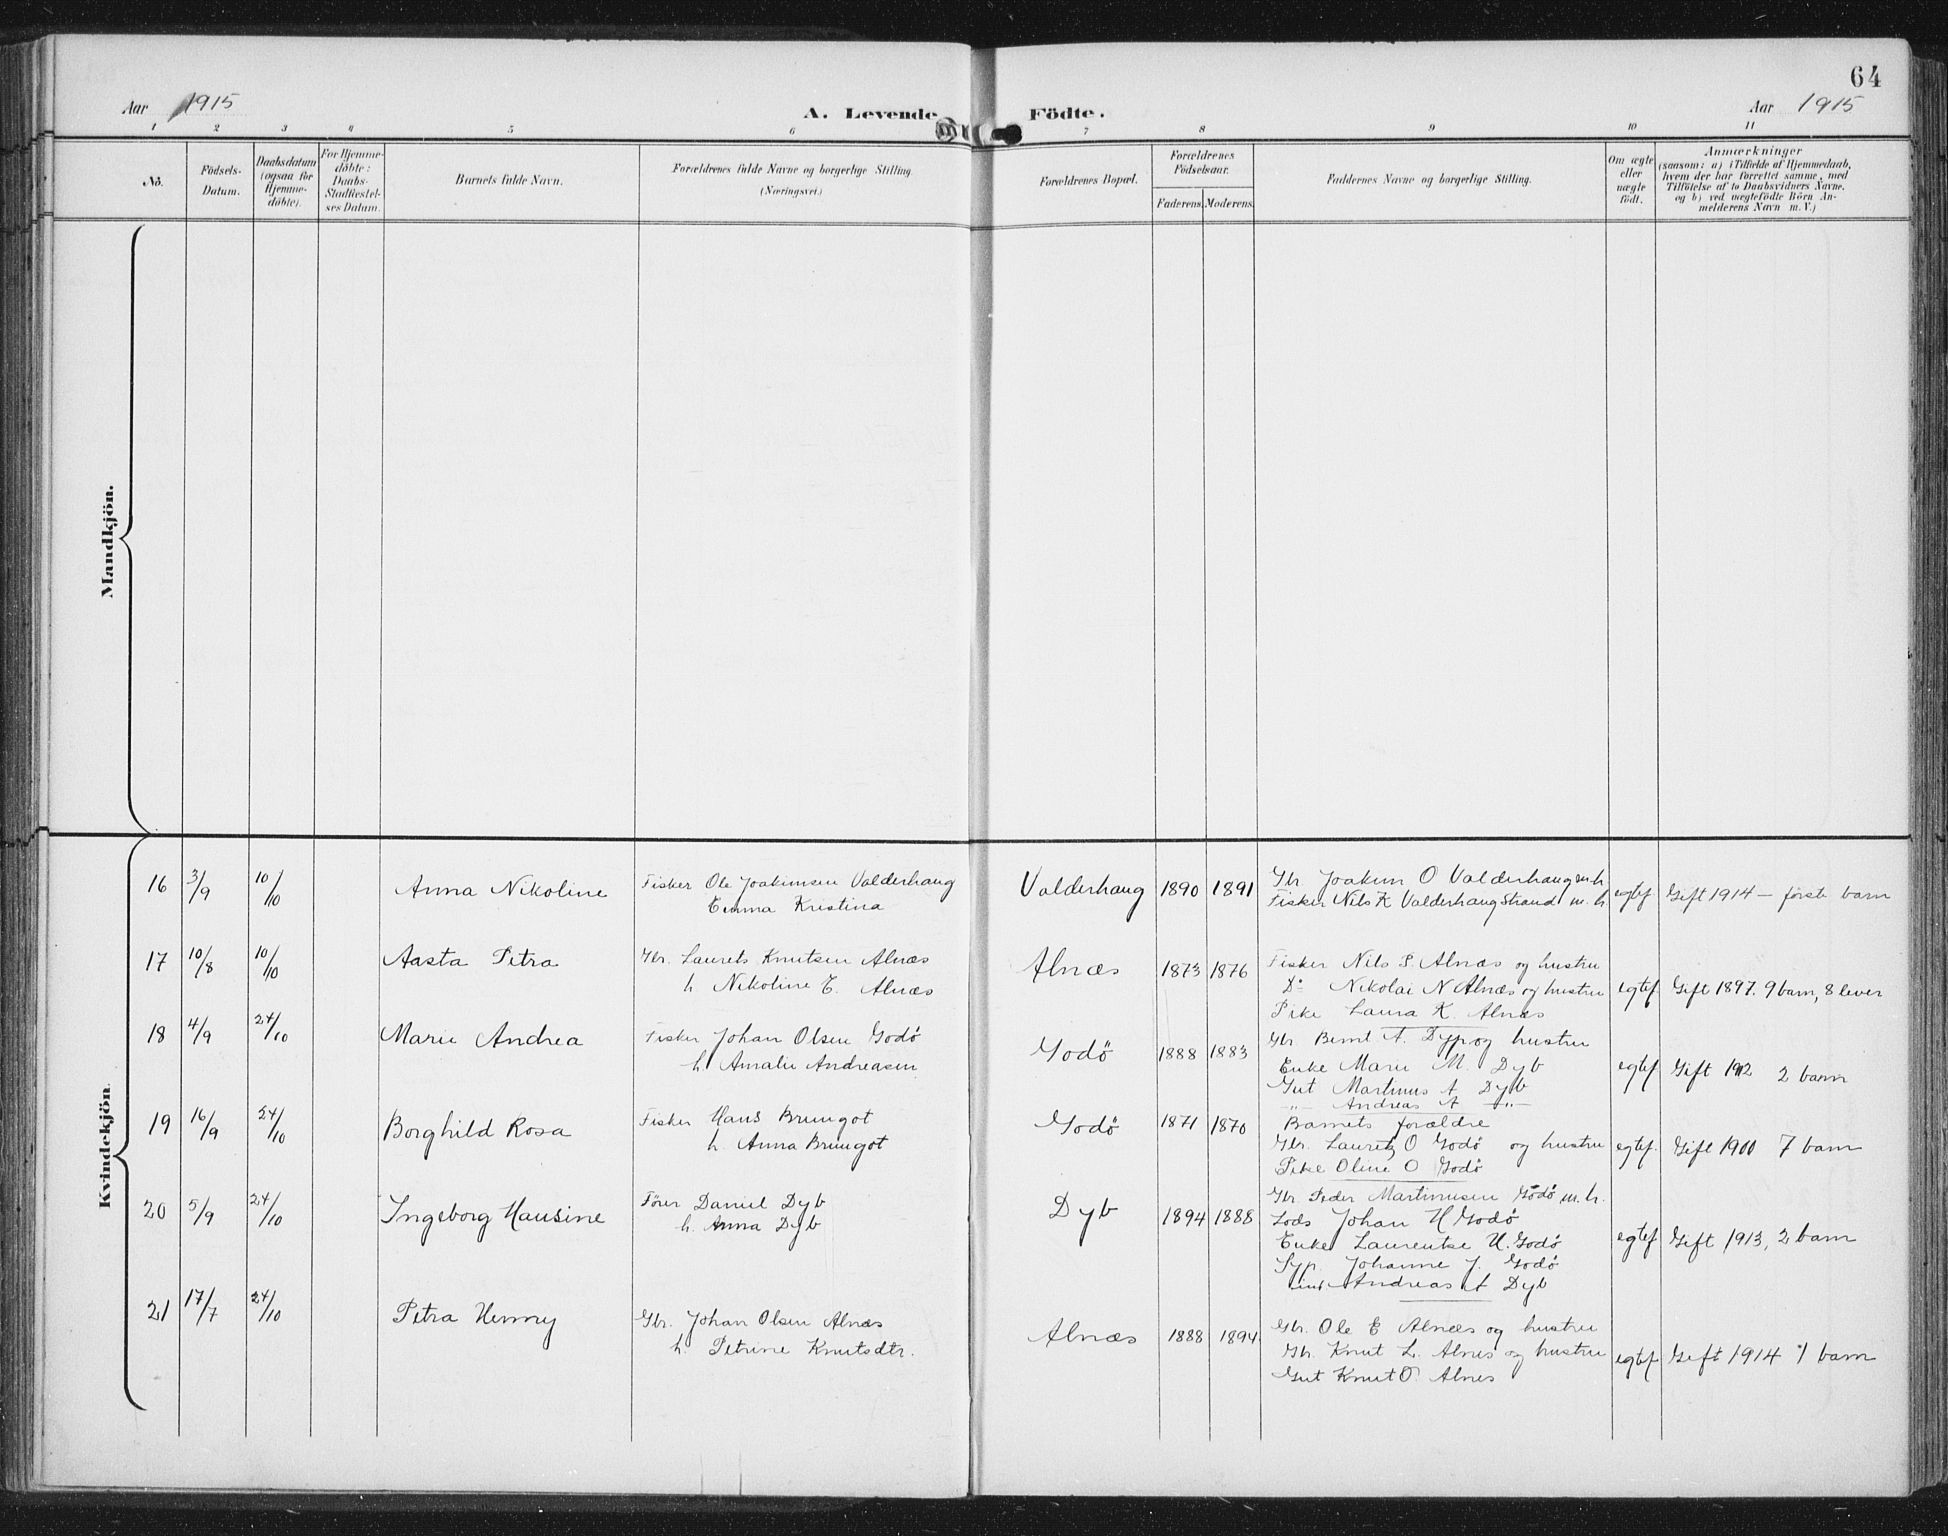 64
Aar 1915 A. Levende Födte. Aar 1915
1 2 3 4 5 6 7 8 9 10 11
No.
Födsels-Datum.
Daabsdatum (ogsaa for Hjemme-döbte).
For Hjemme-döbte: Daabs-Stadfæstel-ses Datum.
Barnets fulde Navn.
Forældrenes fulde Navne og borgerlige Stilling.
(Næringsvei.)
Forældrenes Bopæl.
Forældrenes Födselsaar.
Faderens. Moderens.
Faddernes Navne og borgerlige Stilling.
Om ægte eller uægte født.
Anmærkninger
(saasom: a) i Tilfælde af Hjemmedaab,
hvem der har forrettet samme, med
Tilföielse af to Daabsvidners Navne,
og b) ved uægtefödte Börn An-
melderens Navn m. V.)
Mandkjön.
Kvindekjön.
16 3/9 10/10 Anna Nikoline Fisker Ole Joakimsen Valderhaug Valderhaug 1890 1891 Gbr. Joakim O Valderhaug m.h. egtef. Gift 1914 – første barn
Emma Kristina Fisker Nils K Valderhaug Strand m. h
17 10/8 10/10 Aasta Petra Gbr. Laurets Knutsen Alnæs Alnæs 1873 1876 Fisker Nils P. Alnæs og hustru egtef Gift 1897. 9 barn, 8 lever
h. Nikoline E. Alnæs Do Nikolai N Alnæs og hustru
Pike Laura K. Alnæs
18 4/9 24/10 Marie Andrea Fisker Johan Olsen Godø Godø 1888 1883 Gbr Bernt A. Dyp og hustru egtef Gift 1912 2 barn
h. Amalie Andreasen Enke Marie M. Dyb
Gut Martinus A Dyb
-"- Andreas A -"-
19 16/9 24/10 Borghild Rosa Fisker Hans Brungot Godø 1871 1870 Barnets forældre egtef. Gift 1900 7 barn
h. Anna Brungot Gbr. Lauritz O Godø og hustru
Pike Oline O Godø
20 5/9 24/10 Ingeborg Hansine Fører Daniel Dyb Dyb 1894 1888 Gbr. Peder Martinusen Godø m.h. egtef Gift 1913, 2 barn
h. Anna Dyb Lods Johan H Godø
Enke Laurentse H. Godø
Syp. Johanne J. Godø
Andreas A Dyb
21 17/7 24/10 Petra Henny Gbr. Johan Olsen Alnæs Alnæs 1888 1894 Gbr. Ole E Alnæs og hustru egtef Gift 1914 1 barn
h. Petrine Knutsdtr. Gbr. Knut L. Alnes og hustru
Gut Knut O. Alnes